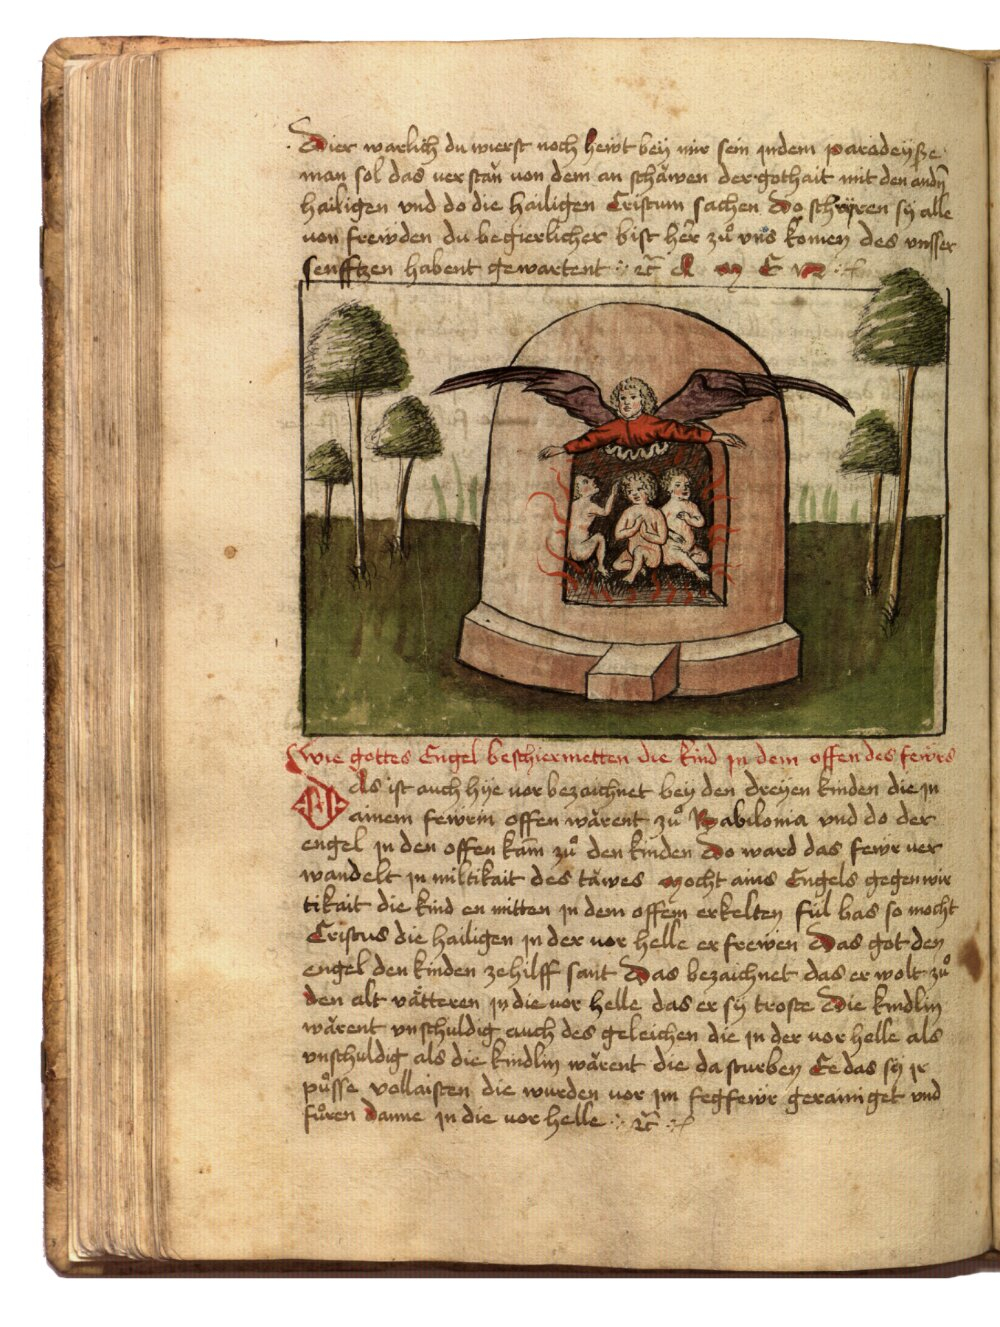 Dier warlich du wierst noch hewt bey mir sein in dem paradeyße
man sol das verstan von dem an schäwen der gothait mit den andn̄
hailigen vnd do die hailigen Cristum sachen Do schryren sy alle
von frewden du begierlicher bist her zů vns komen des vnsser
senfftzen habent gewartent :· ꝛc̄ A M E N :·
Wie gottes Engel beschiermetten die kind in dem offen des fewrs
Das ist auch hye vor bezaichnet bey den dreyen kinden die in
ainem fewrin offen wärent zů Babilonia vnd do der
engel in den offen kam̄ zů den kinden Do ward das fewr ver
wandelt in miltikait des täwes Mocht ains Engels gegenwir
tikait die kind en mitten in dem offem erkelten fül bas so mocht
Cristus die hailigen in der vor helle erfrewen Das got den
engel den kinden ze hilff sant Das bezaichnet das er wolt zů
den alt vätteren in die vor helle das er sy troste Die kindlin
wärent vnschuldig auch des geleichen die in der vor helle als
vnschuldig als die kindlin wärent die da sturben Ee das sy ir
půsse vollaisten die wurden vor im fegfewr gerainiget vnd
fůren danne in die vor helle :· ꝛc̄ :·